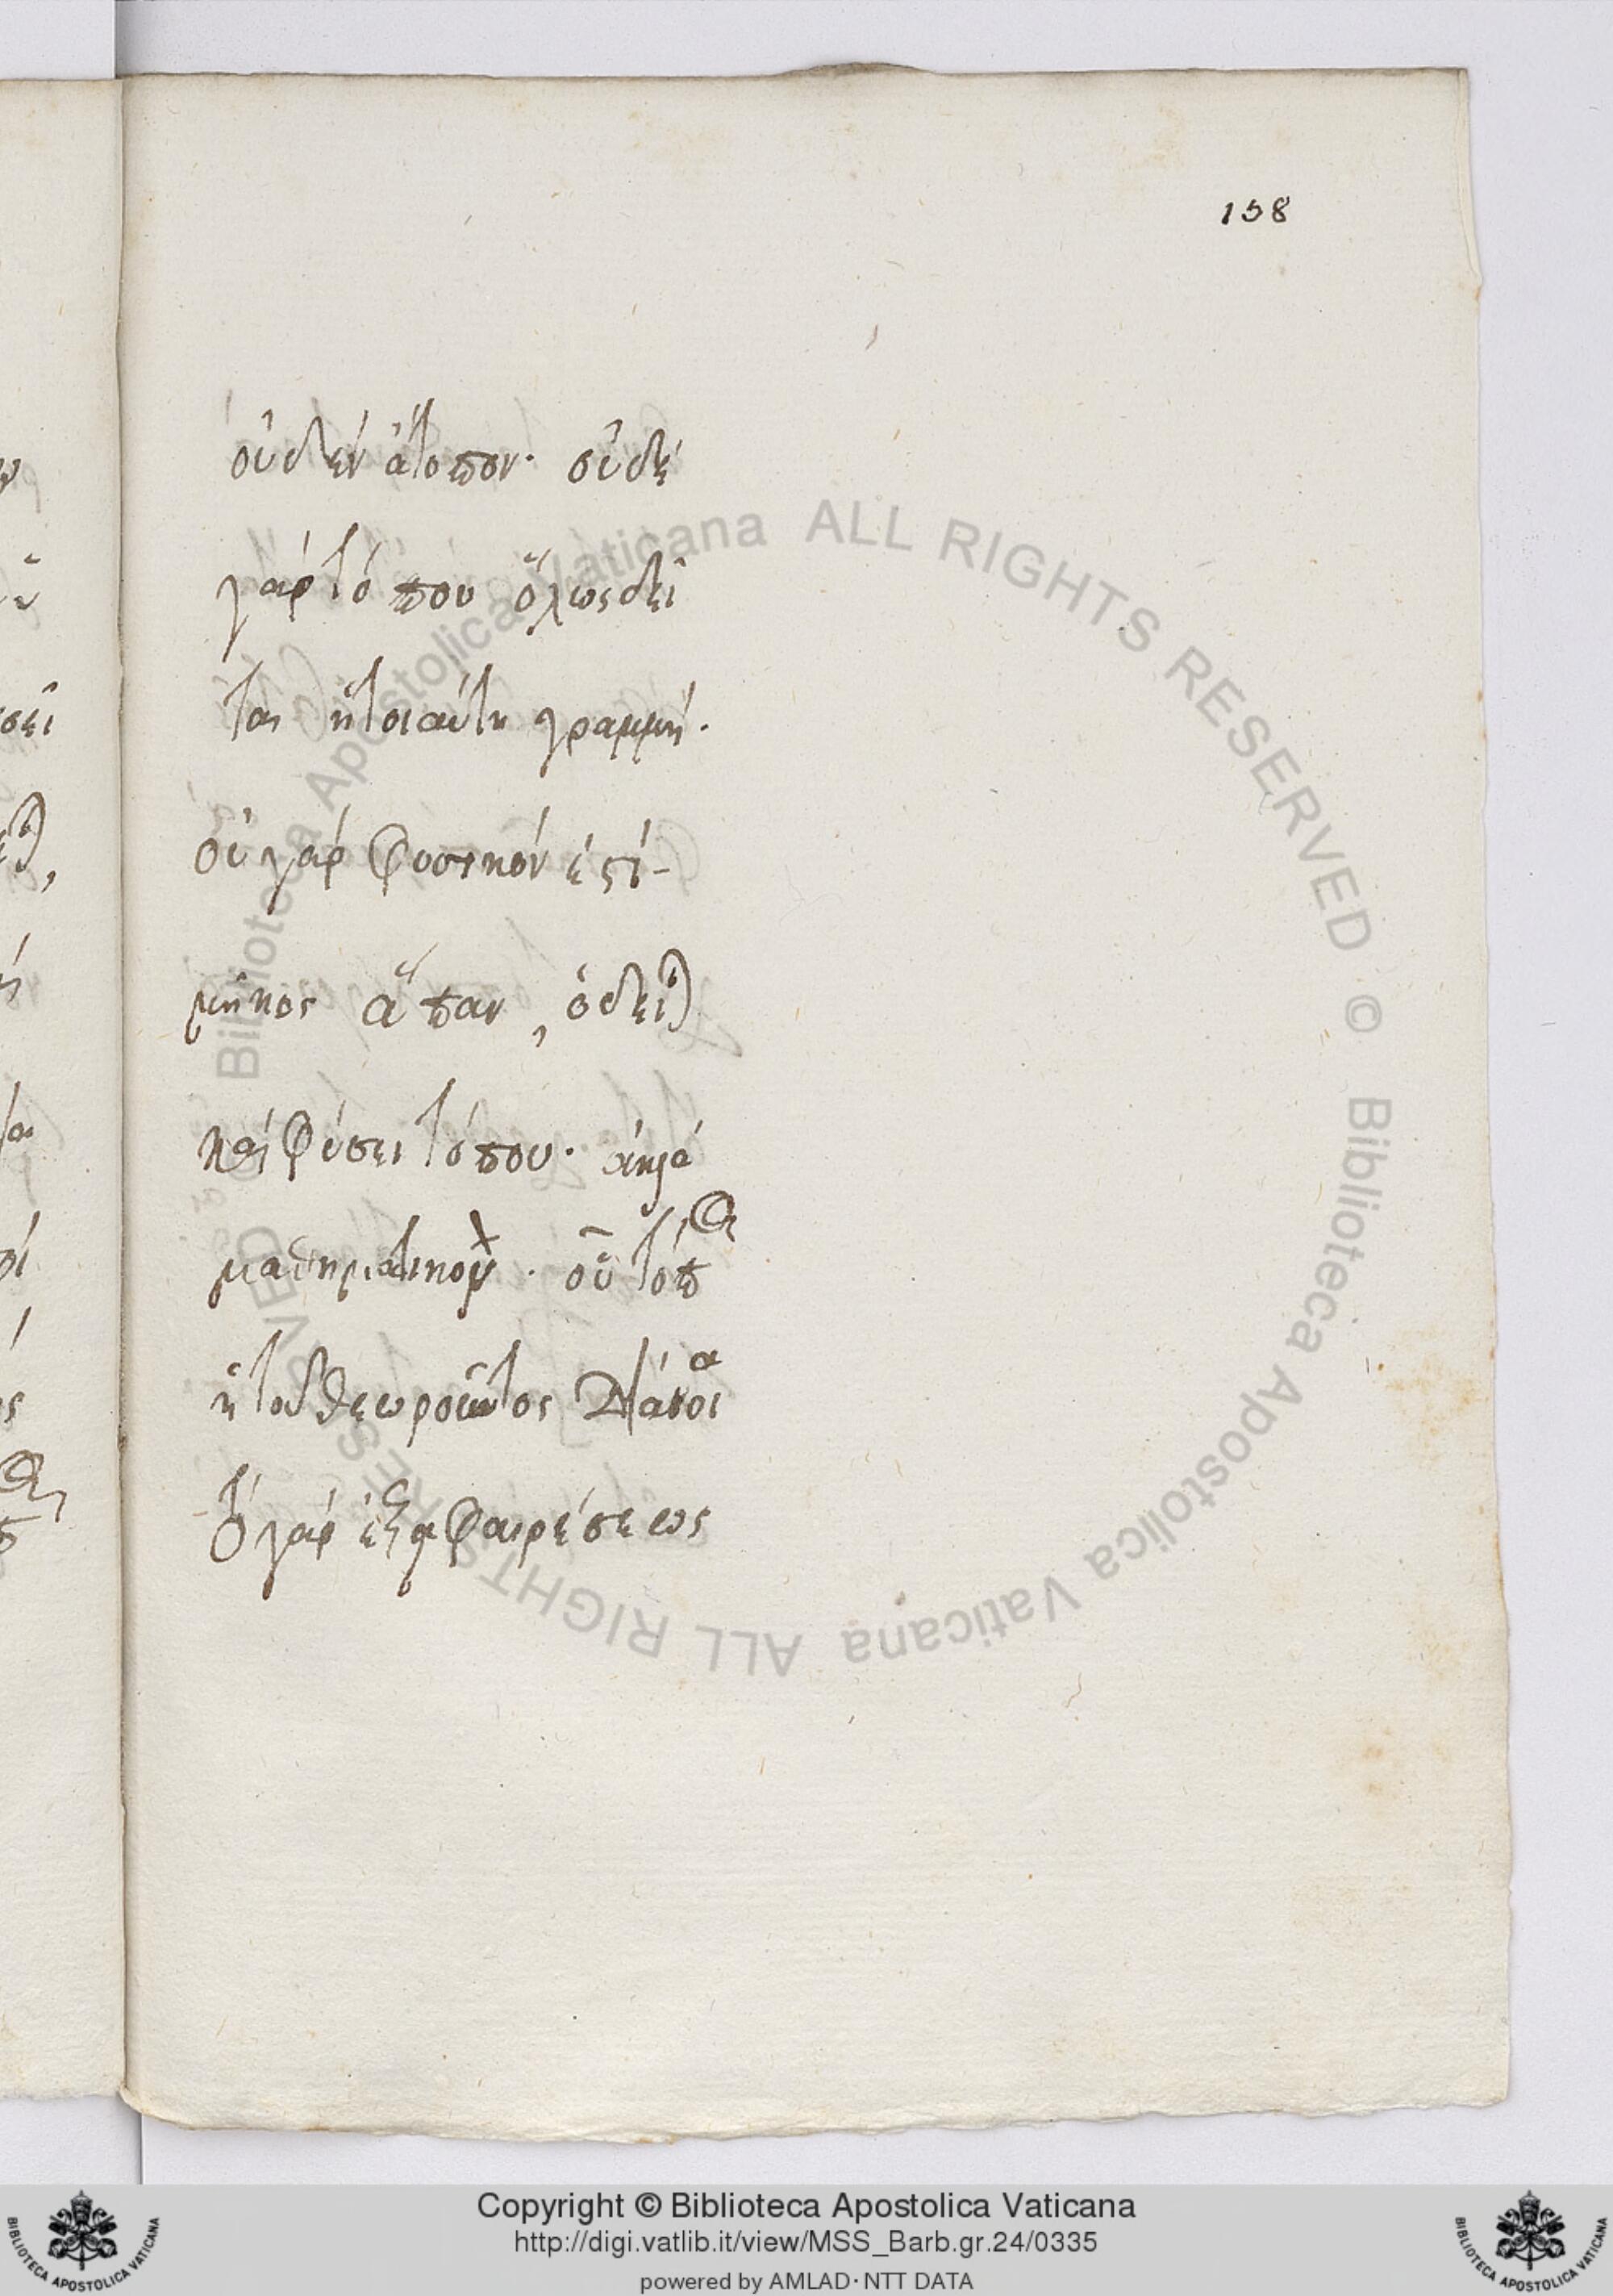 158
οὐδὲν ἄτοπον· οὐδὲ
γὰρ τόπου ὅλως δεῖ
ται ἡ τοιαύτη γραμμή.
οὐ γὰρ φυσικόν ἐστι-
μῆκος ἅπαν, ὃ δεῖται
καὶ φύσει τόπου· ἀλλὰ
μαθηματικόν· οὗ τόπ
ἡ τοῦ θεωροῦντος διάνοια
τὸ γὰρ ἐξ ἀφαιρέσεως
ALL RIGHTS RESERVED © Biblioteca Apostolica Vaticana
ALL RIGHTS RESERVED © Biblioteca Apostolica Vaticana
Copyright © Biblioteca Apostolica Vaticana
http://digi.vatlib.it/view/MSS_Barb.gr.24/0335
powered by AMLAD·NTT DATA
BIBLIOTECA APOSTOLICA VATICANA
BIBLIOTECA APOSTOLICA VATICANA